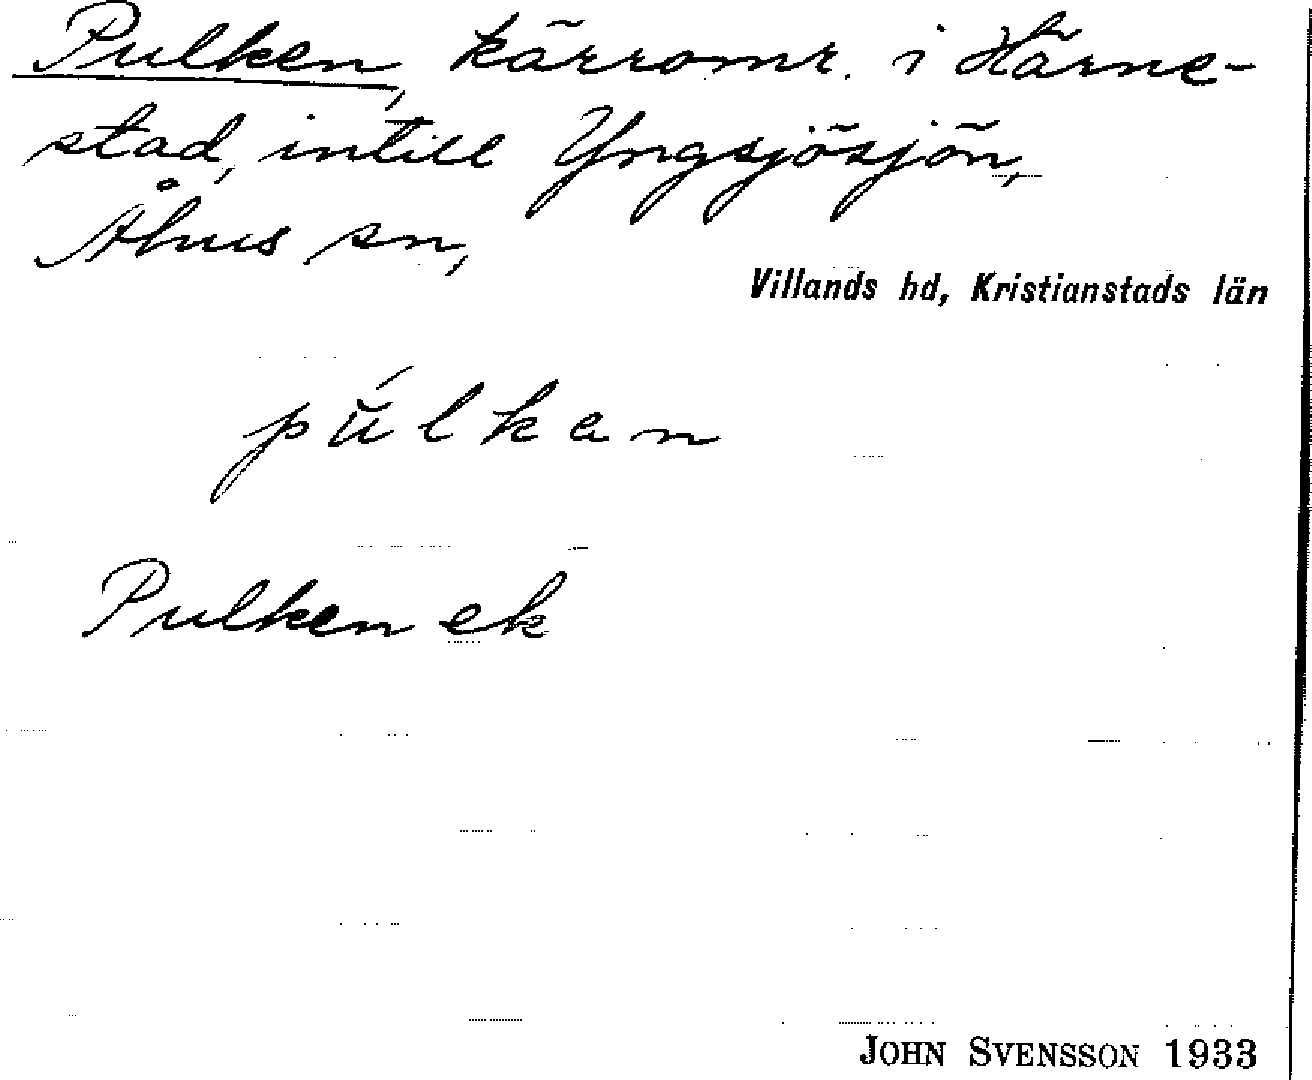 Pulken, kärromr. i Härne-
stad, intill Yngsjösjön,
Åhus sn,
Villands hd, Kristianstads län
púlkan
Pulken ek
JOHN SVENSSON 1933